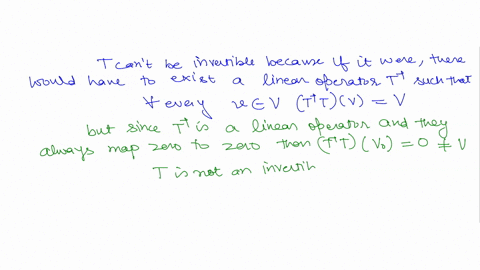 T can't be invertible because if it were, there
would have to exist a linear operator T⁻¹ such that
∀ every v ∈ V (T⁻¹T)(V) = V
but since T⁻¹ is a linear operator and they
always map zero to zero then (T⁻¹T)(V₀) = 0 ≠ V
T is not an invertib